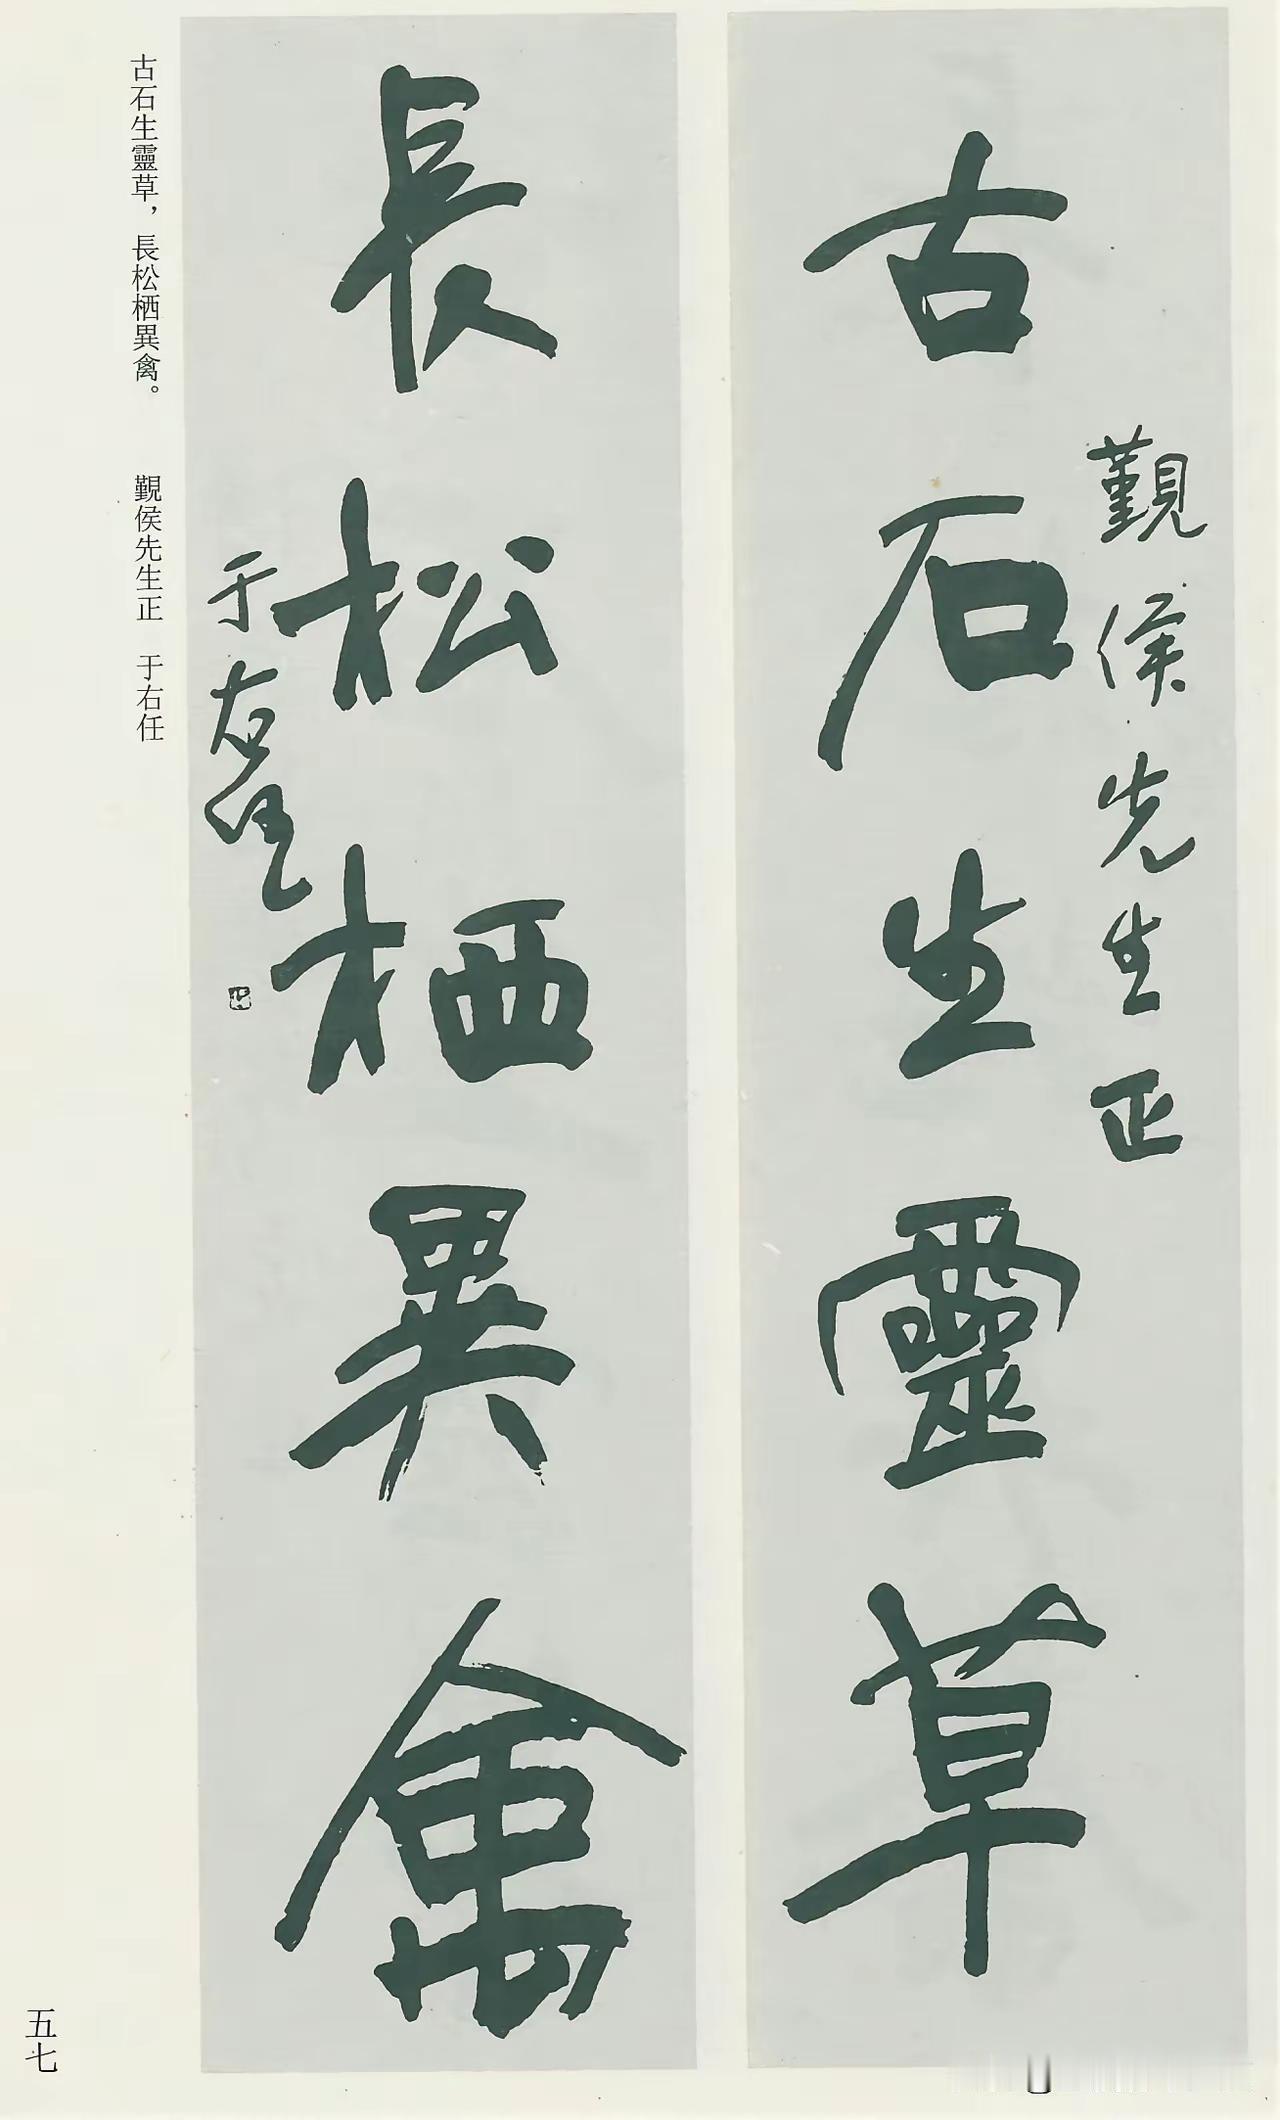 古石生靈草
觐侯先生正
長松栖異禽
于右任
古石生靈草，長松栖異禽。 觐侯先生正 于右任
五七